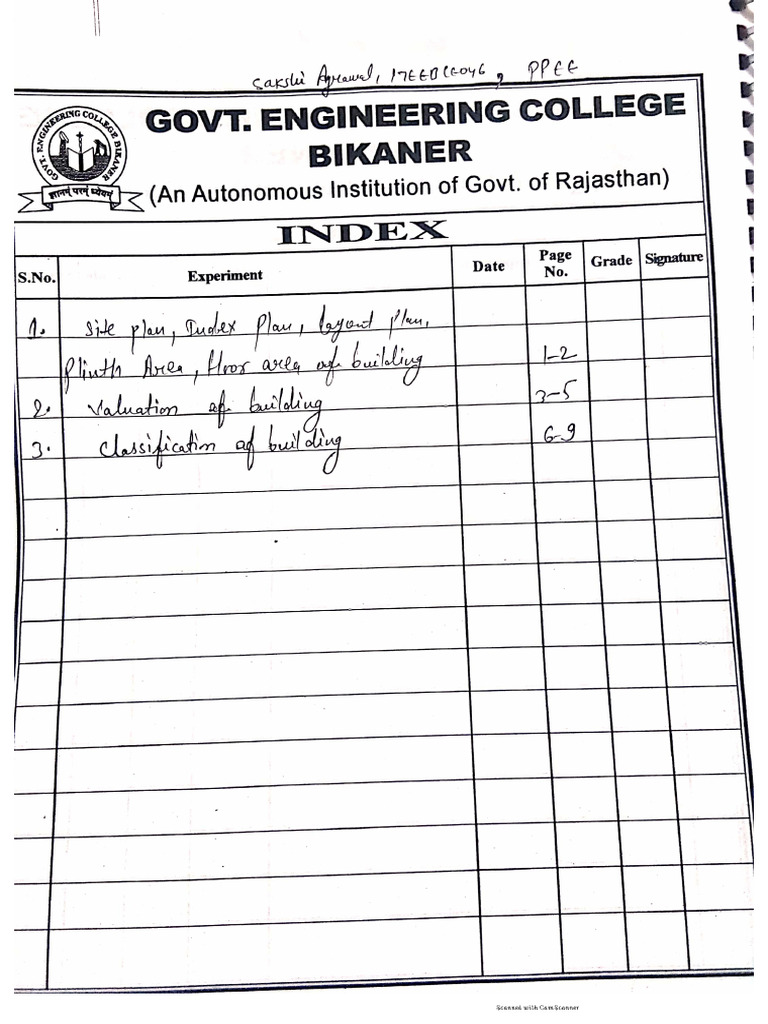 Sakshi Agrawal, 17EEBCE046, PPEE
GOVT. ENGINEERING COLLEGE
BIKANER
(An Autonomous Institution of Govt. of Rajasthan)
GOVT. ENGINEERING COLLEGE BIKANER
ज्ञानम् परमं ध्येयम्
INDEX
S.No. Experiment Date Page No. Grade Signature
1. Site plan, Index Plan, Layout plan,
Plinth Area, floor area of building 1-2
2. Valuation of building 3-5
3. Classification of building 6-9
Scanned with CamScanner